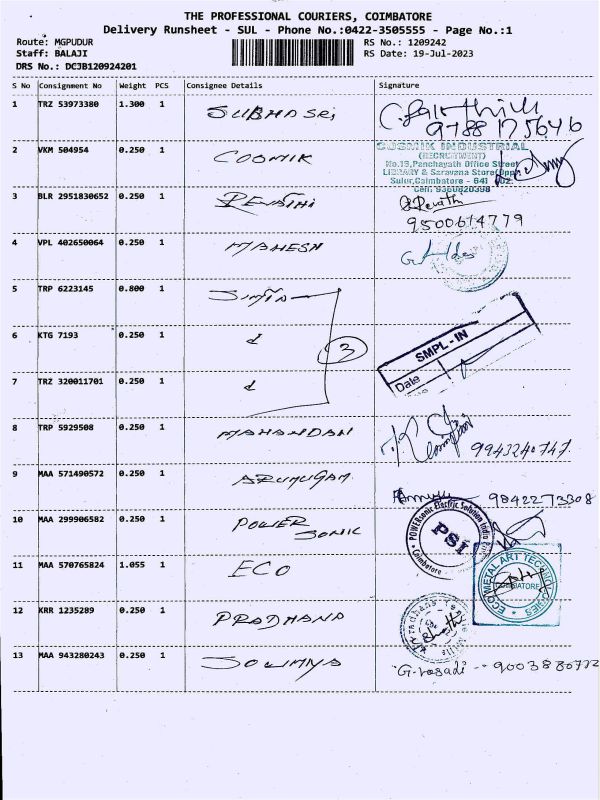 THE PROFESSIONAL COURIERS, COIMBATORE
Delivery Runsheet - SUL - Phone No.:0422-3505555 - Page No.:1
Route: MGPUDUR RS No.: 1209242
Staff: BALAJI RS Date: 19-Jul-2023
DRS No.: DCJB120924201
S No Consignment No Weight PCS Consignee Details Signature
1 TRZ 53973380 1.300 1 SUBHA SRI
9788175646
2 VKM 504954 0.250 1 COSMIK
COSMIK INDUSTRIAL
(RECRUITMENT)
No.19,Panchayath Office Street
LIBRARY & Saravana Store Opp.
Sulur,Coimbatore - 641 402.
Cell: 9360820398
3 BLR 2951830652 0.250 1 REVATHI
Revathi
9500614779
4 VPL 402650064 0.250 1 MAHESH
5 TRP 6223145 0.800 1
6 KTG 7193 0.250 1
3
SMPL - IN
Date
7 TRZ 320011701 0.250 1
8 TRP 5929508 0.250 1 MAHANDAN
9943240747
9 MAA 571490572 0.250 1 ARUMUGAM
9842273308
10 MAA 299906582 0.250 1 POWER SONIC
POWERsonic Electric Solution India
PSI
Coimbatore
11 MAA 570765824 1.055 1 ECO
ECOMETAL ART TECHNOLOGIES
COIMBATORE
12 KRR 1235289 0.250 1 PRADHANA
13 MAA 943280243 0.250 1 SOWMYA